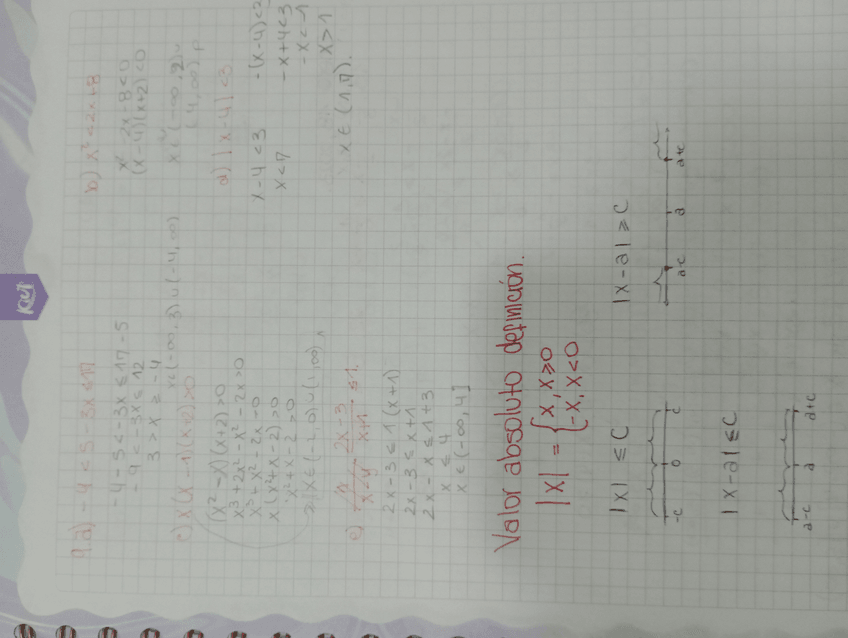 9. a) -4 < 5 - 3x ≤ 17
-4 - 5 < -3x ≤ 17 - 5
-9 < -3x ≤ 12
3 > x ≥ -4
x ∈ (-∞, 3) ∪ (-4, ∞)
b) x² < 2x + 8
x² - 2x - 8 < 0
(x - 4)(x + 2) < 0
(4, ∞)
c) x(x - 1)(x + 2) > 0
(x² - x)(x + 2) > 0
x³ + 2x² - x² - 2x > 0
x³ + x² - 2x > 0
x(x² + x - 2) > 0
x² + x - 2 > 0
x ∈ (-2, 0) ∪ (1, ∞)
d) |x - 4| < 3
x - 4 < 3
x < 7
-(x - 4) < 3
-x + 4 < 3
-x < -1
x > 1
x ∈ (1, 7).
e) 2x - 3 / x + 1 ≤ 1
2x - 3 ≤ 1(x + 1)
2x - 3 ≤ x + 1
2x - x ≤ 1 + 3
x ≤ 4
x ∈ (-∞, 4]
Valor absoluto definición.
|x| = { x, x ≥ 0
-x, x < 0
|x| ≤ c
-c 0 c
|x - a| ≥ c
a-c a a+c
|x - a| ≤ c
a-c a a+c